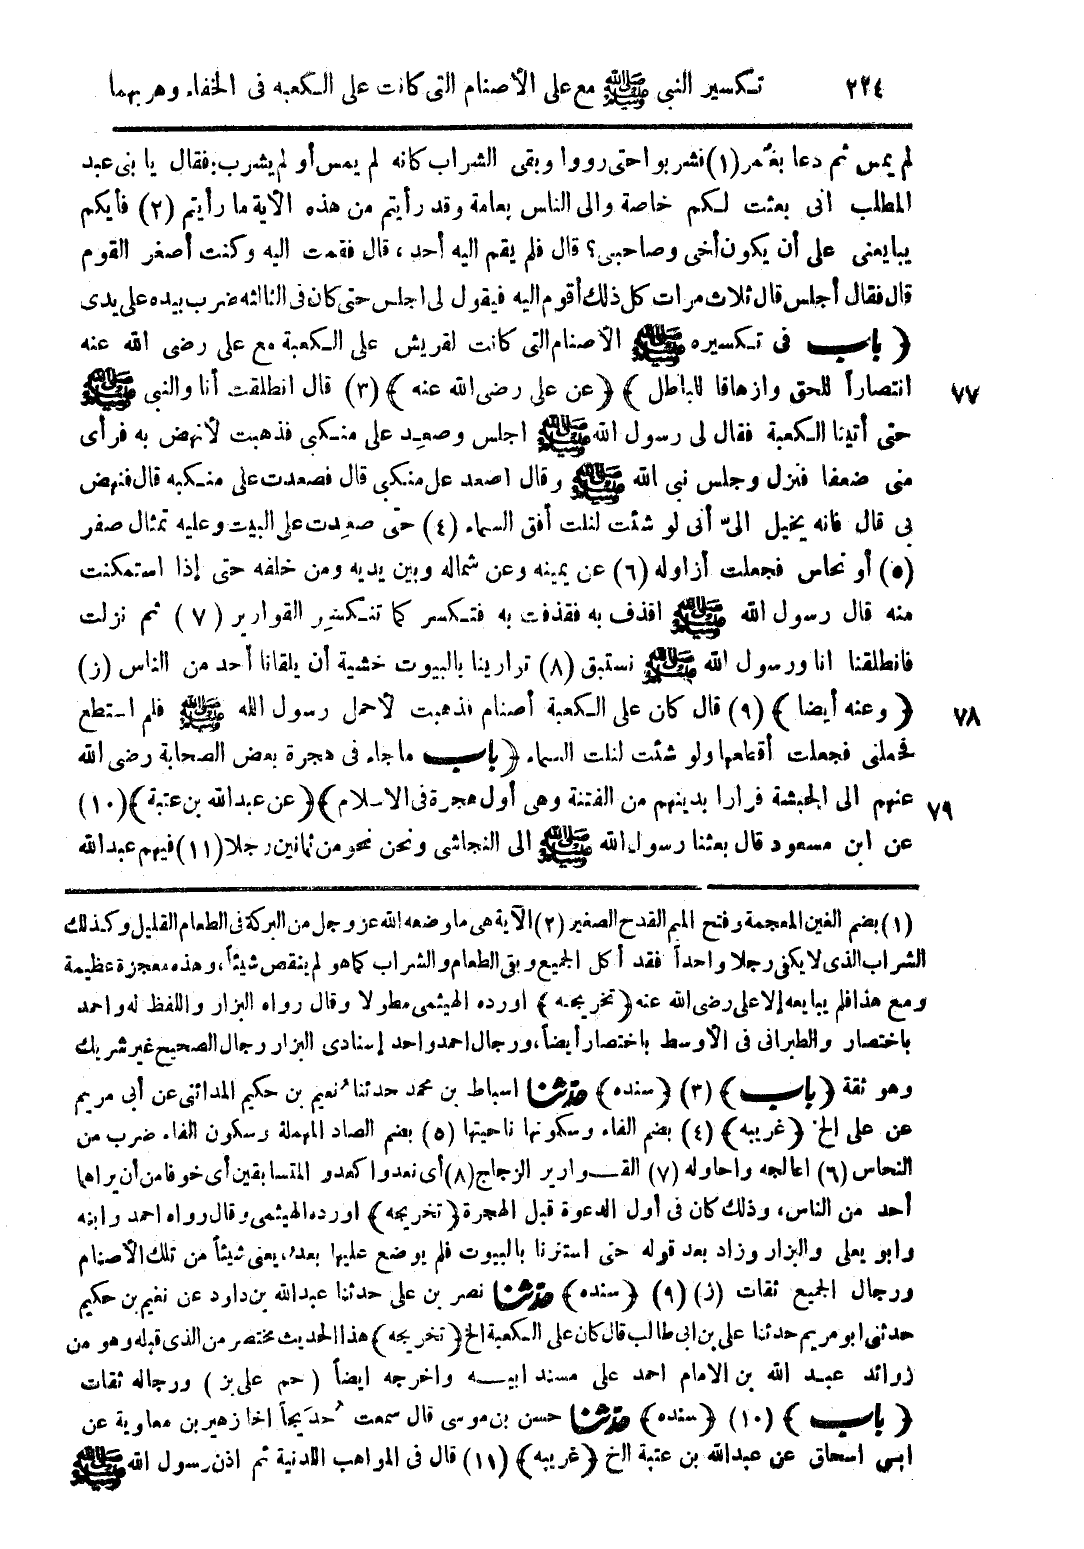 ٢٢٤ تكسير النبى ﷺ مع على الأصنام التى كانت على الكعبه فى الخفاء وهربهما
لم يمس ثم دعا بغُمر (١) فشربوا حتى رووا وبقى الشراب كانه لم يمس أو لم يشرب: فقال يا بنى عبد
المطلب انى بعثت لكم خاصة والى الناس بعامة وقد رأيتم من هذه الآية ما رأيتم (٢) فأيكم
يبايعنى على أن يكون أخى وصاحبى؟ قال فلم يقم اليه أحد، قال فقمت اليه وكنت أصغر القوم
قال فقال أجلس قال ثلاث مرات كل ذلك أقوم اليه فيقول لى اجلس حتى كان فى الثالثه ضرب بيده على يدى
﴿ باب فى تكسيره ﷺ الأصنام التى كانت لقريش على الكعبة مع على رضى الله عنه
٧٧ انتصاراً للحق وازهاقا للباطل ﴾ ﴿ عن على رضى الله عنه ﴾ (٣) قال انطلقت أنا والنبى ﷺ
حتى أتينا الكعبة فقال لى رسول الله ﷺ اجلس وصعِد على منكبى فذهبت لأنهض به فرأى
منى ضعفا فنزل وجلس نبى الله ﷺ وقال اصعد على منكبى قال فصعدت على منكبه قال فنهض
بى قال فانه يخيل الىّ أنى لو شئت لنلت أفق السماء (٤) حتى صعِدت على البيت وعليه تمثال صفر
(٥) أو نحاس فجعلت أزاوله (٦) عن يمينه وعن شماله وبين يديه ومن خلفه حتى إذا استمكنت
منه قال رسول الله ﷺ اقذف به فقذفت به فتكسر كما تنكسر القوارير (٧) ثم نزلت
فانطلقنا انا ورسول الله ﷺ نستبق (٨) توارينا بالبيوت خشية أن يلقانا أحد من الناس (ز)
٧٨ ﴿ وعنه أيضا ﴾ (٩) قال كان على الكعبة أصنام فذهبت لأحمل رسول الله ﷺ فلم استطع
فحملنى فجعلت أقطعها ولو شئت لنلت السماء ﴿ باب ما جاء فى هجرة بعض الصحابة رضى الله
٧٩ عنهم الى الحبشة فرارا بدينهم من الفتنة وهى أول هجرة فى الاسلام ﴾ ﴿ عن عبدالله بن عتبة ﴾ (١٠)
عن ابن مسعود قال بعثنا رسول الله ﷺ الى النجاشى ونحن نحو من ثمانين رجلا (١١) فيهم عبدالله
(١) بضم الغين المعجمة وفتح الميم القدح الصغير (٢) الآية هى ما وضعه الله عز وجل من البركة فى الطعام القليل وكذلك
الشراب الذى لا يكفى رجلا واحداً فقد أكل الجميع وبقى الطعام والشراب كما هو لم ينقص شيئاً، وهذه معجزة عظيمة
ومع هذا فلم يبايعه إلا على رضى الله عنه ﴿ تخريجه ﴾ اورده الهيثمى مطولا وقال رواه البزار واللفظ له واحمد
باختصار والطبرانى فى الأوسط باختصار أيضاً، ورجال احمد واحد إسنادى البزار رجال الصحيح غير شريك
وهو ثقة ﴿ باب ﴾ (٣) ﴿ سنده ﴾ حدثنا اسباط بن محمد حدثنا نُعيم بن حكيم المدائنى عن أبى مريم
عن على الخ ﴿ غريبه ﴾ (٤) بضم الفاء وسكونها ناحيتها (٥) بضم الصاد المهملة وسكون الفاء ضرب من
النحاس (٦) اعالجه واحاوله (٧) القوارير الزجاج (٨) أى نعدوا كعدو المتسابقين أى خوفا من أن يراهما
أحد من الناس، وذلك كان فى أول الدعوة قبل الهجرة ﴿ تخريجه ﴾ اورده الهيثمى وقال رواه احمد وابنه
وابو يعلى والبزار وزاد بعد قوله حتى استترنا بالبيوت فلم يوضع عليها بعدُ، يعنى شيئاً من تلك الأصنام
ورجال الجميع ثقات (ز) (٩) ﴿ سنده ﴾ حدثنا نصر بن على حدثنا عبدالله بن داود عن نعيم بن حكيم
حدثنى ابو مريم حدثنا على بن ابى طالب قال كان على الكعبة الخ ﴿ تخريجه ﴾ هذا الحديث مختصر من الذى قبله وهو من
زوائد عبد الله بن الامام احمد على مسند ابيه واخرجه ايضاً (حم على بز) ورجاله ثقات
﴿ باب ﴾ (١٠) ﴿ سنده ﴾ حدثنا حسن بن موسى قال سمعت حُدَيجاً اخا زهير بن معاوية عن
ابى اسحاق عن عبدالله بن عتبة الخ ﴿ غريبه ﴾ (١١) قال فى المواهب اللدنية ثم اذن رسول الله ﷺ